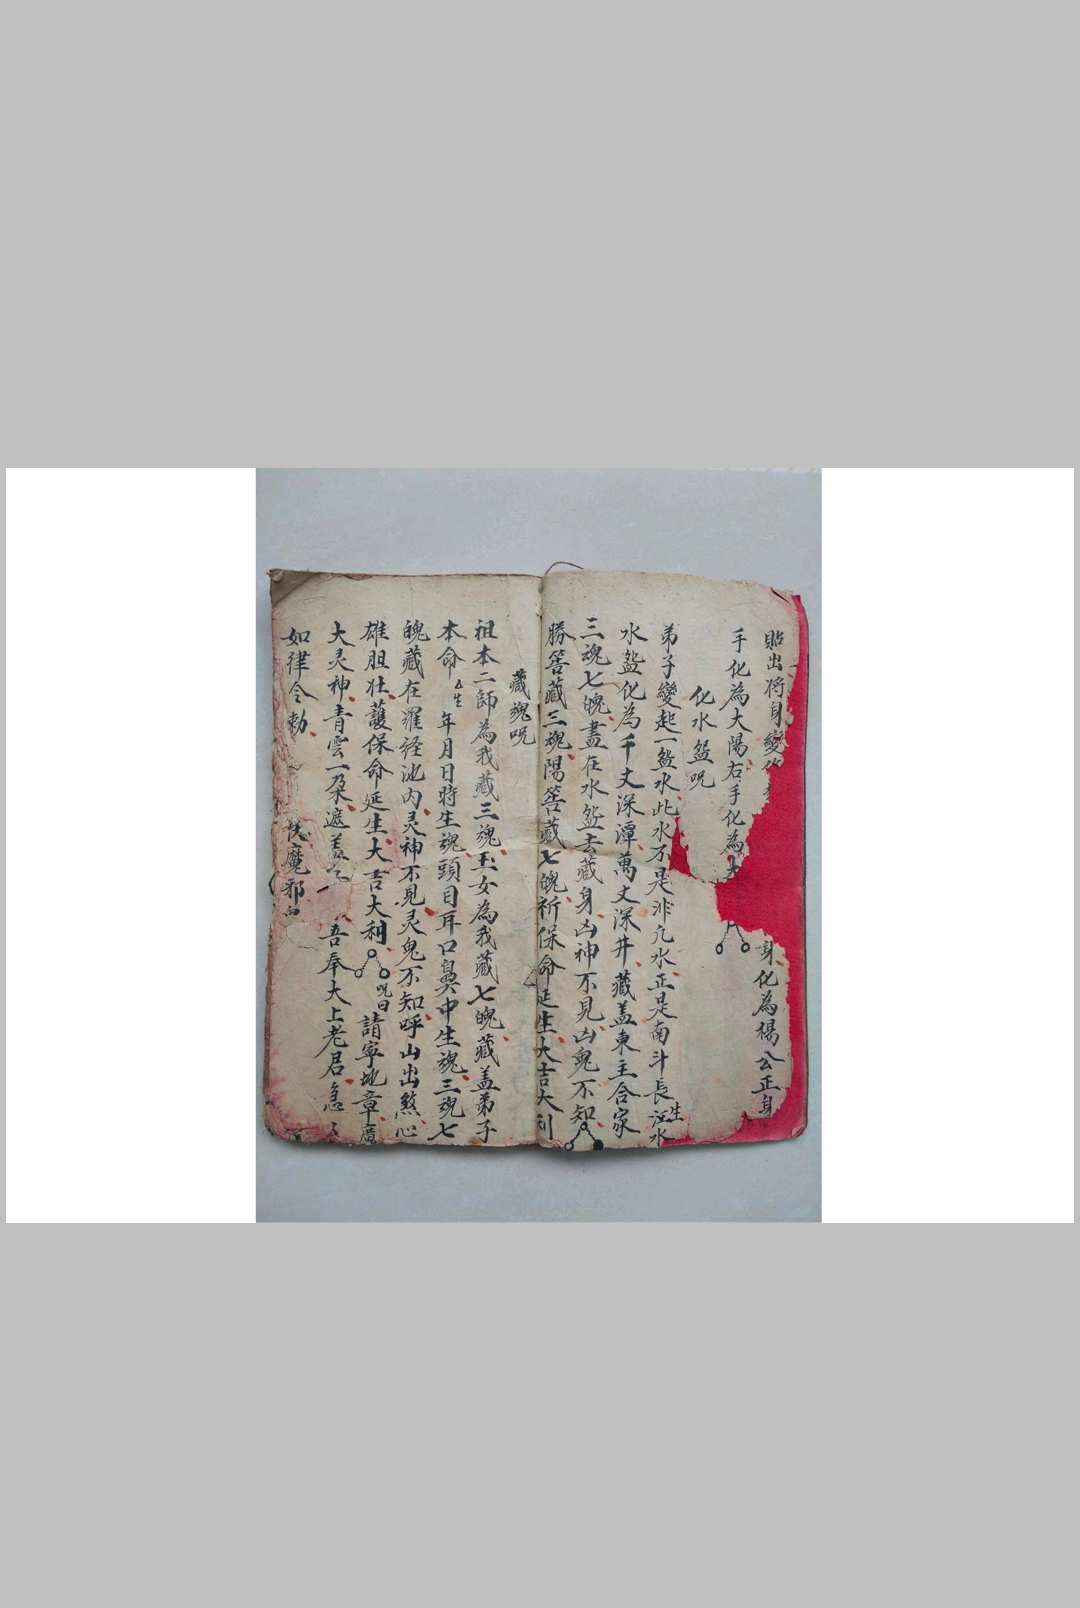 貼出将身變
身化為楊公正身
手化為大陽右手化為
化水盌咒
弟子變起一盌水此水不是非凡水正是南斗長生水
水盌化為千丈深潭萬丈深井藏蓋東主合家
三魂七魄盡在水盌去藏身凶神不見凶鬼不知
勝筶藏三魂陽筶藏七魄祈保命延生大吉大利
藏魂咒
祖本二師為我藏三魂玉女為我藏七魄藏蓋弟子
本命生年月日時生魂頭目耳口鼻中生魂三魂七
魄藏在羅経池内灵神不見灵鬼不知呼山出煞心
雄胆壮護保命延生大吉大利咒曰請寧地章廣
大灵神青雲一朶遮盖吾奉大上老君急
如律令勅
魔邪